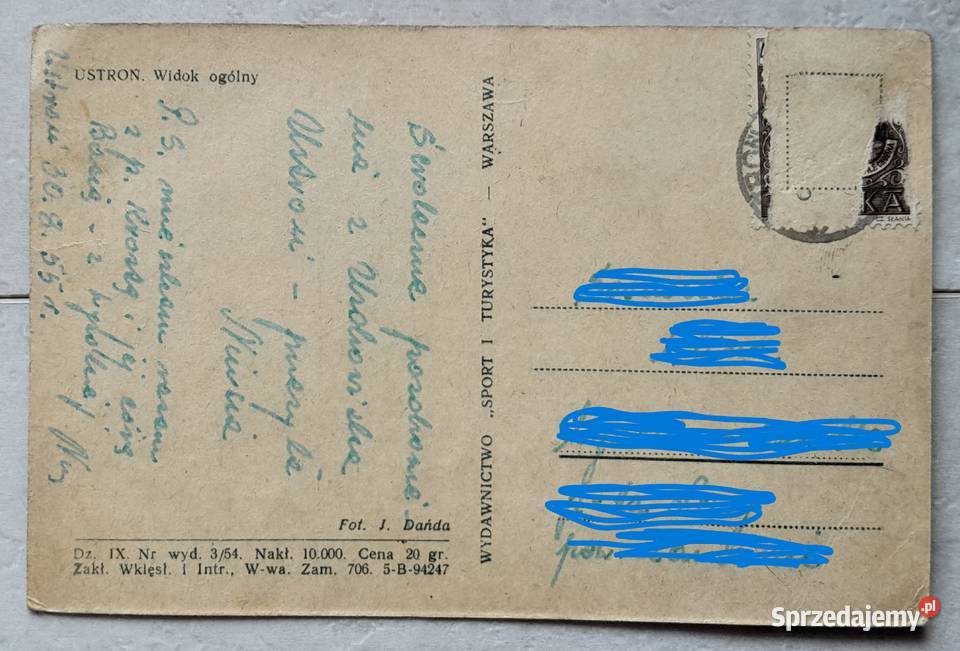 USTROŃ. Widok ogólny
Ustroń 30.8.55 r.
P.S. mieszkam razem
z p. i jej córą
Basią - z
Serdeczne pozdrowie-
nia z Uzdrowiska
Ustroń - przesyła
Niusia
Fot. J. Dańda
Dz. IX. Nr wyd. 3/54. Nakł. 10.000. Cena 20 gr.
Zakł. Wklęsł. i Intr., W-wa. Zam. 706. 5-B-94247
WYDAWNICTWO „SPORT I TURYSTYKA” — WARSZAWA
KA
CZ. SŁANIA
pow.
Sprzedajemy.pl